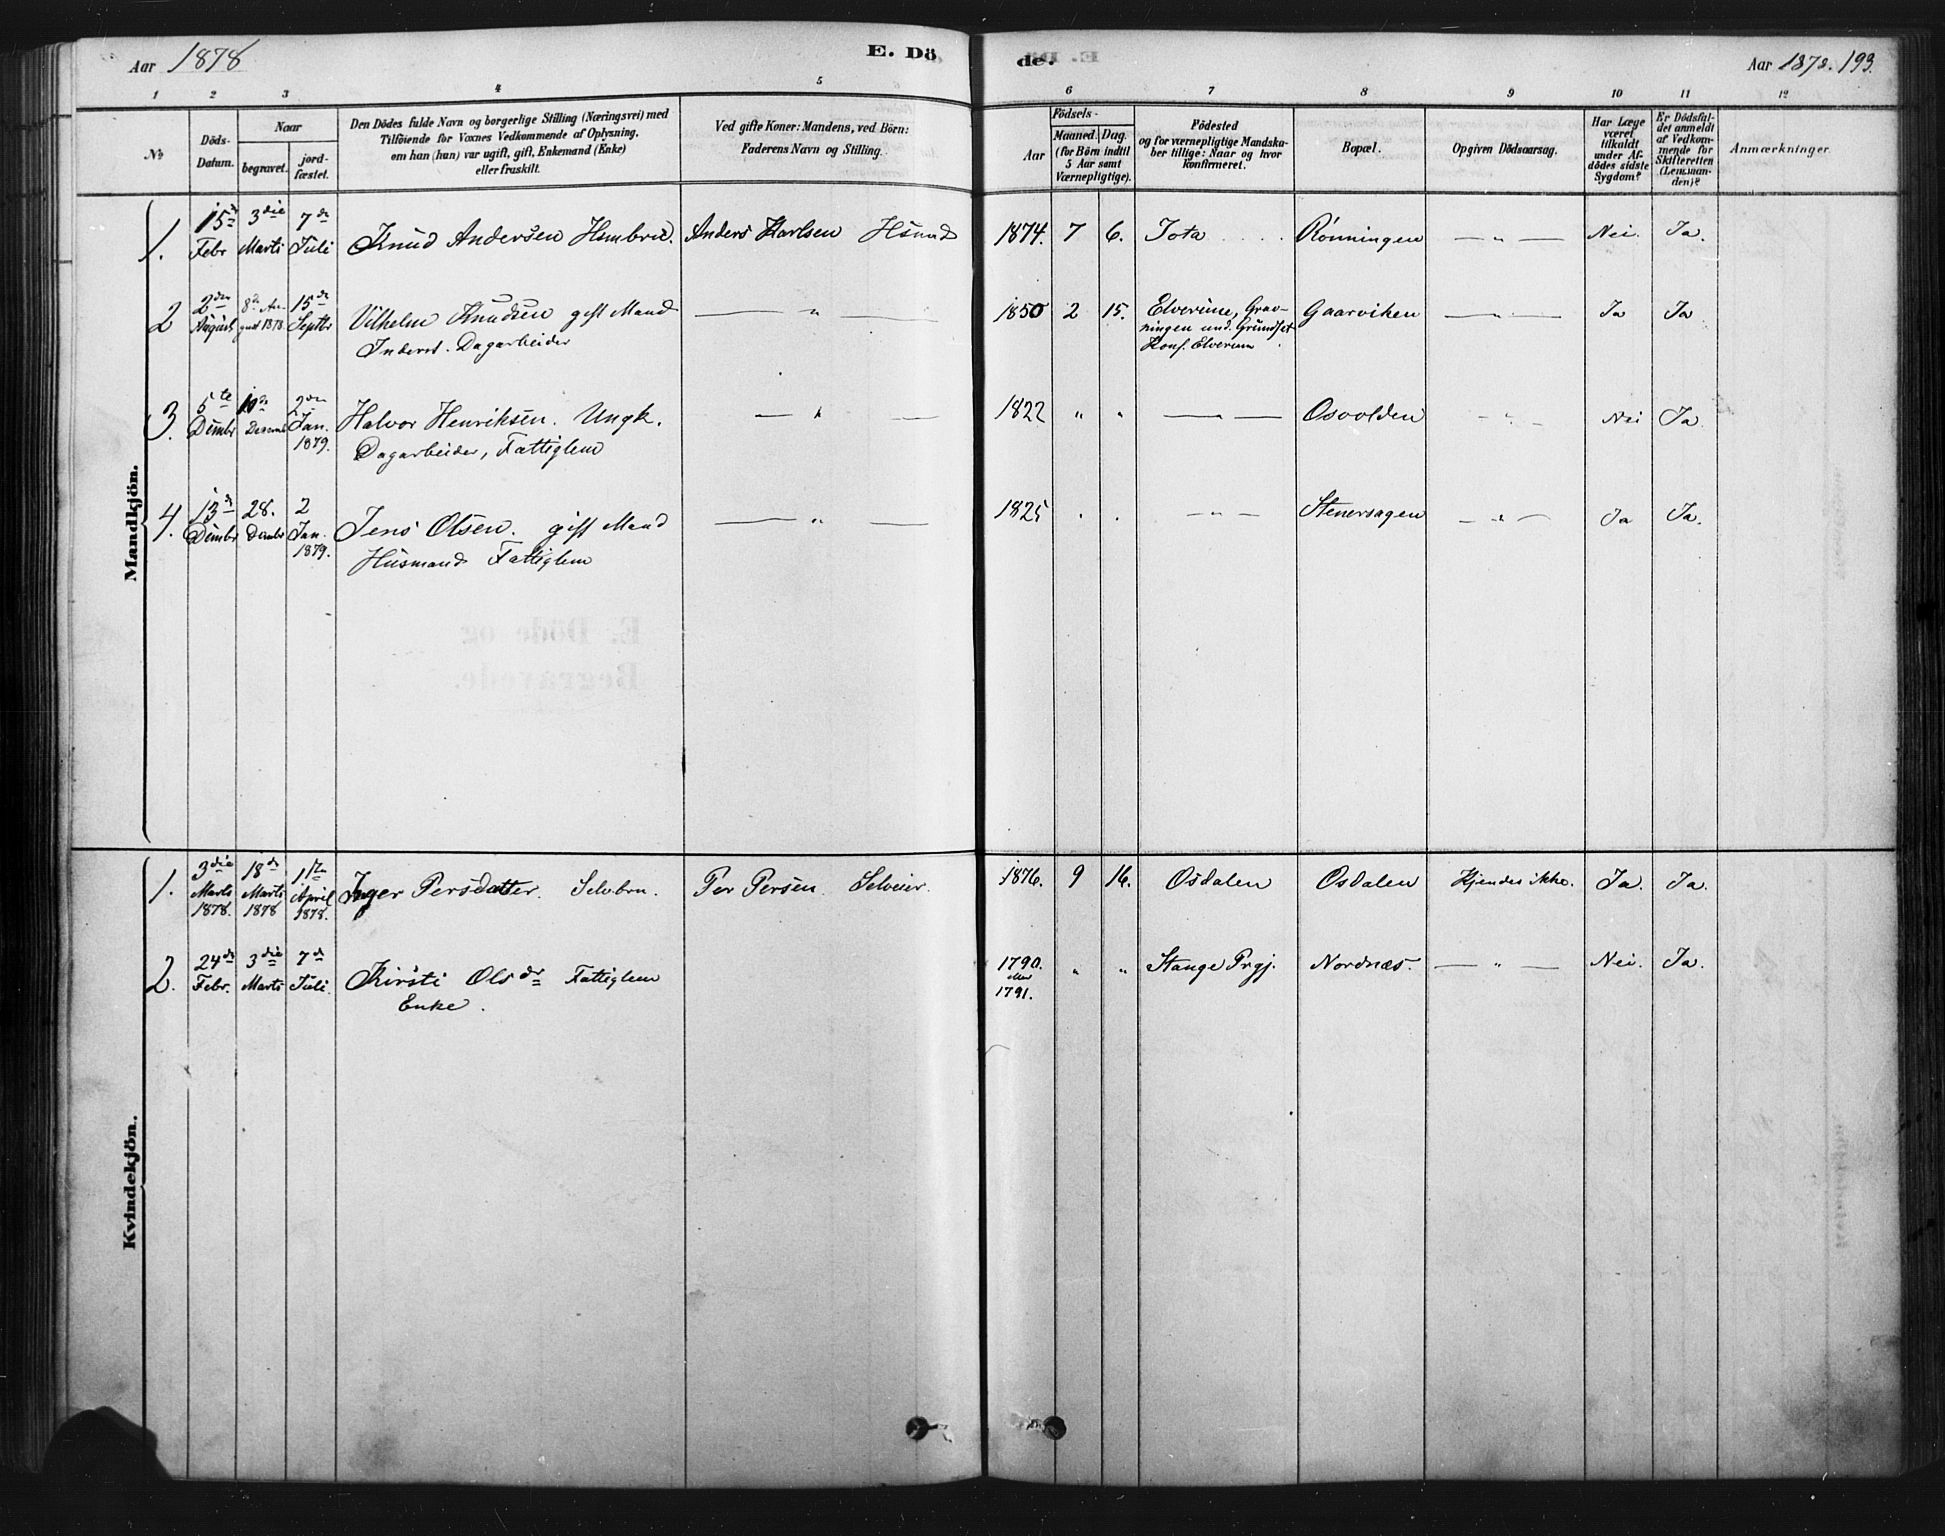 Aar 1878
E. Dö
de.
Aar 1878. 193.
1 2 3 4 5 6 7 8 9 10 11 12
No
Döds-Datum.
Naar
begravet.
jord-fæstet.
Den Dödes fulde Navn og borgerlige Stilling (Næringsvei) med
Tilföiende for Voxnes Vedkommende af Oplysning,
om han (hun) var ugift, gift, Enkemand (Enke)
eller fraskilt.
Ved gifte Koner: Mandens, ved Börn:
Faderens Navn og Stilling.
Födsels-
Aar
Maaned. Dag.
(for Börn indtil
5 Aar samt
Værnepligtige).
Födested
og for værnepligtige Mandska-
ber tillige: Naar og hvor
konfirmeret.
Bopæl.
Opgiven Dödsaarsag.
Har Læge
været
tilkaldt
under Af-
dödes sidste
Sygdom?
Er Dödsfal-
det anmeldt
af Vedkom-
mende for
Skifteretten
(Lensman-
den)?
Anmærkninger.
Mandkjön.
1. 15de Febr 3die Marts 7de Juli Knud Andersen Anders Karlsen 1874. 7 6. Rönningen — " — Nei. Ja.
2 2den August 8de August 1878. 15de Septbr Vilhelm Knudsen gift Mand — " — 1850 2 15. Elverum, Grav- Gaarviken — " — Ja Ja
Inderst. Dagarbeider ningen und. Grundset
Konf. Elverum
3. 5te Dcmbr 10de 2den Jan. 1879. Halvor Henriksen. Ungk. — " — 1822 " " — — Osvolden " Nei Ja.
Dagarbeider, Fattiglem
4. 13de Dcmbr 28. Dcmbr 2 Jan. 1879. Jens Olsen. gift Mand — " — 1825 . . — " — Stenersagen — " — Ja Ja.
Husmand Fattiglem
Kvindekjön.
1. 3die Marts 1878. 18de Marts 1878 April 1878. Inger Persdatter. Selvbrn. Per Persen. Selveier. 1876. 9 16. Osdalen Osdalen Kjendes ikke. Ja. Ja.
2. 24de Febr. 3die Marts 7de Juli. Kirsti Olsdr Fattiglem 1790. " " Stange Prgj. Nordnæs. — " — Nei. Ja.
Enke. eller
1791.